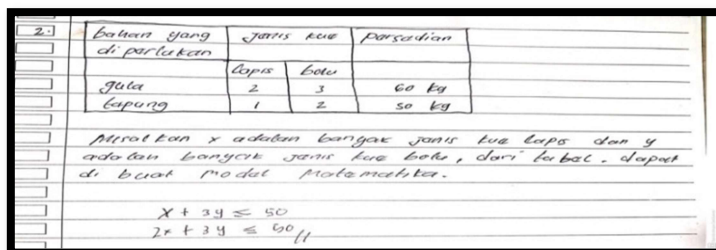 2. bahan yang jenis kue persediaan
di perlukan
lapis bolu
gula 2 3 60 kg
tepung 1 2 50 kg
Misal kan x adalah banyak jenis kue lapis dan y
adalah banyak jenis kue bolu, dari tabel. dapat
di buat model matematika.
x + 3y ≤ 50
2x + 3y ≤ 60 //